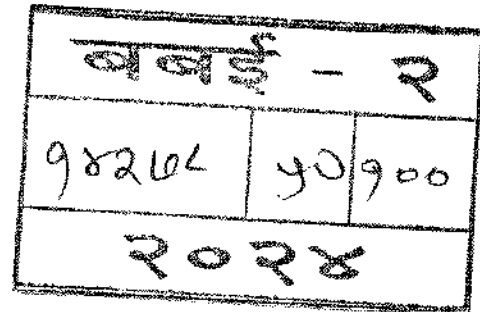 बबई - २
१४२७८ ५० १००
२०२४